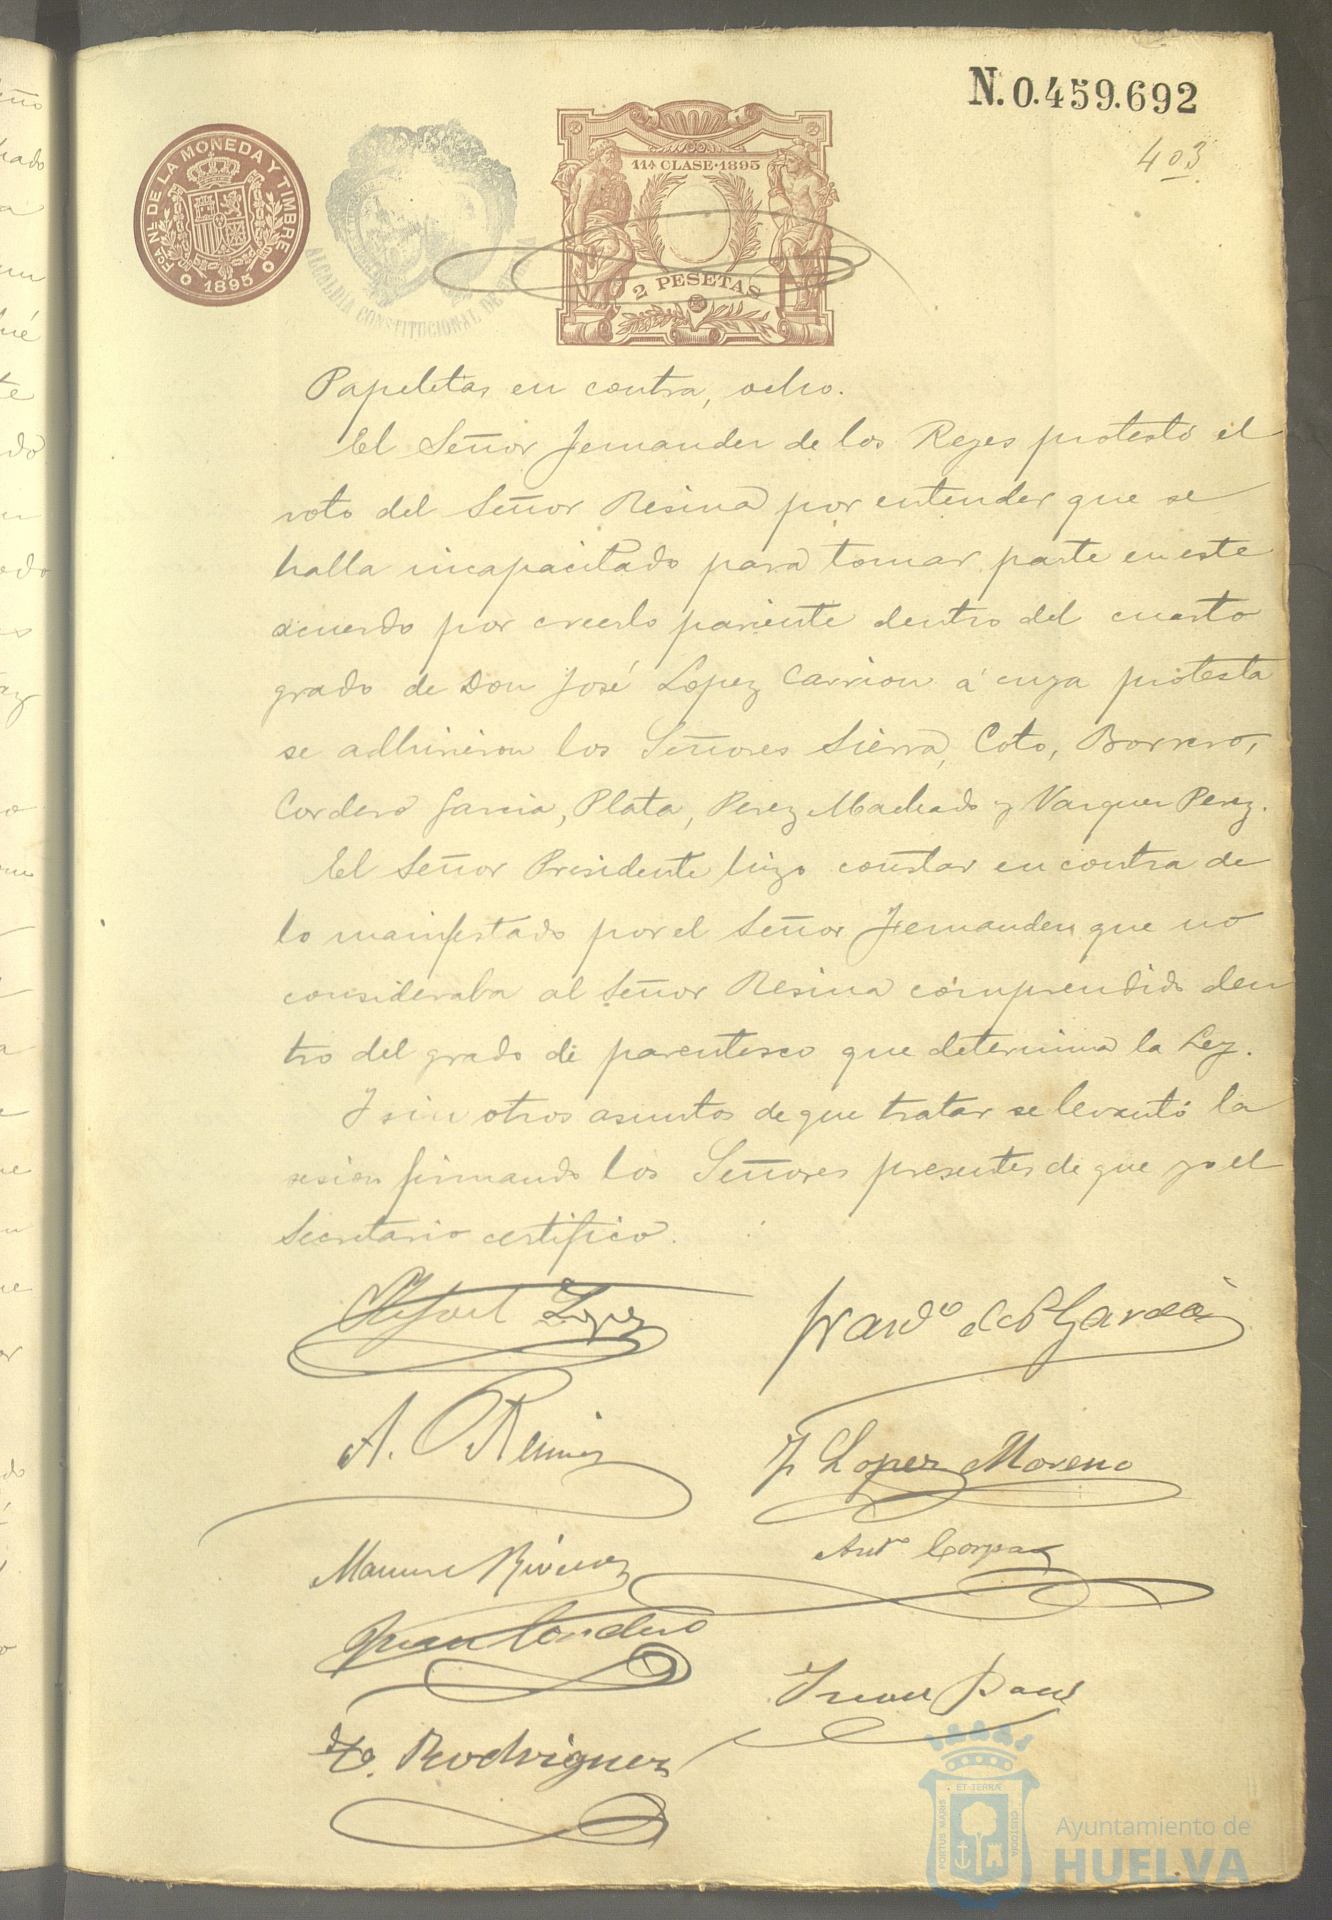 N. 0.459.692
403
FCA NL DE LA MONEDA Y TIMBRE
1895
ALCALDIA CONSTITUCIONAL DE
11ª CLASE·1895
2 PESETAS
Papeletas en contra, ocho.
El Señor Fernandez de los Reyes protestó el
voto del Señor Resina por entender que se
halla incapacitado para tomar parte en este
acuerdo por creerlo pariente dentro del cuarto
grado de Don José Lopez Carrion á cuya protesta
se adhirieron los Señores Sierra, Coto, Borrero,
Cordero Garcia, Plata, Perez Machado y Vazquez Perez.
El Señor Presidente hizo constar en contra de
lo manifestado por el Señor Fernandez que no
consideraba al Señor Resina comprendido den
tro del grado de parentesco que determina la Ley.
Y sin otros asuntos de que tratar se levantó la
sesion firmando los Señores presentes de que yo el
Secretario certifico.
Rafael Lopez
Garcia
A.
J Lopez Moreno
Antº Corpas
Juan Cordero
Rodriguez
PORTUS MARIS ET TERRÆ CUSTODIA
Ayuntamiento de
HUELVA